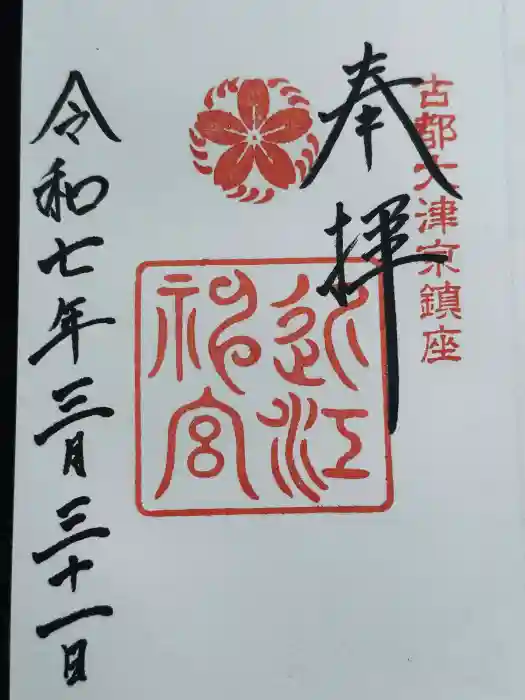 古都大津京鎮座
奉拝
近江
神宮
令和七年三月三十一日